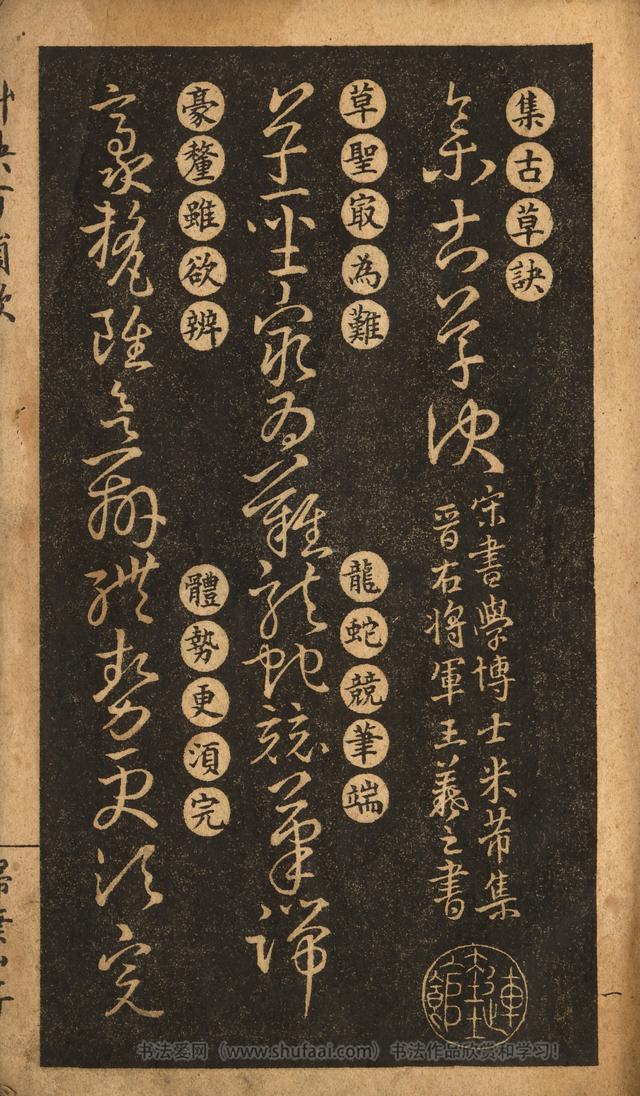 集古草訣
集古草訣
宋書學博士米芾集
晉右將軍王羲之書
草聖㝡為難
龍蛇競筆端
草聖㝡為難龍蛇競筆端
豪釐雖欲辨
體勢更須完
豪釐雖欲辨體勢更須完
一
书法爱网（www.shufaai.com）书法作品欣赏和学习！